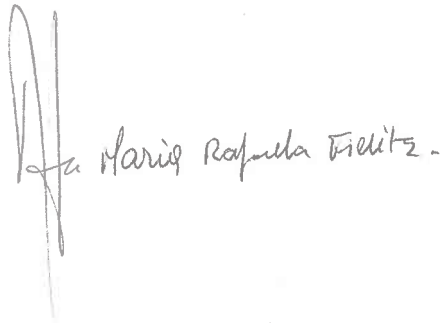 Maria Rafaella Fielitz.